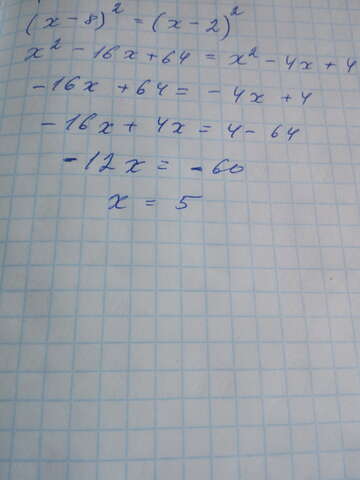 (x - 8)² = (x - 2)²
x² - 16x + 64 = x² - 4x + 4
-16x + 64 = -4x + 4
-16x + 4x = 4 - 64
-12x = -60
x = 5